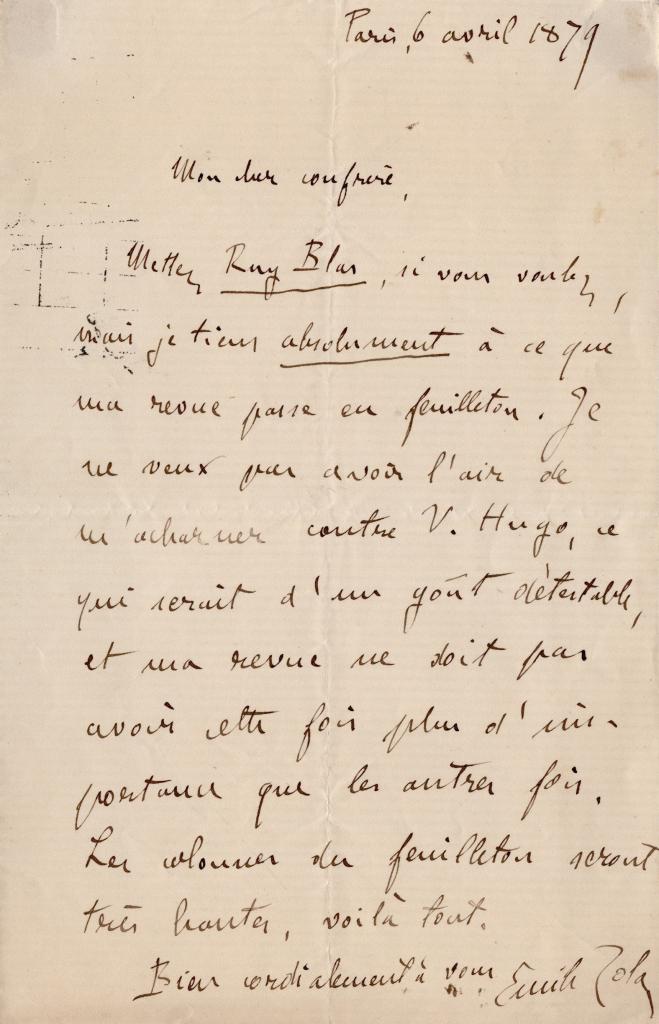 Paris, 6 avril 1879
Mon cher confrère,
Mettez Ruy Blas, si vous voulez,
mais je tiens absolument à ce que
ma revue passe en feuilleton. Je
ne veux pas avoir l'air de
m'acharner contre V. Hugo, ce
qui serait d'un goût détestable,
et ma revue ne doit pas
avoir cette fois plus d'im-
portance que les autres fois.
Les colonnes du feuilleton seront
très hautes, voilà tout.
Bien cordialement à vous Emile Zola